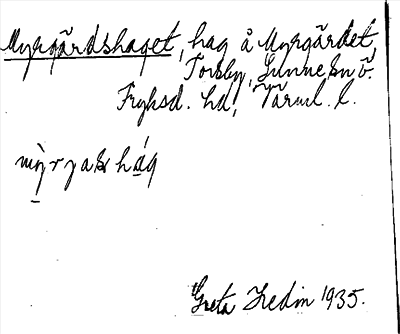 Myrgårdshaget, hag å Myrgårdet,
Torsby, Sunne sn ö.
Fryksd. hd, Värml. l.
Greta Hedin 1935.